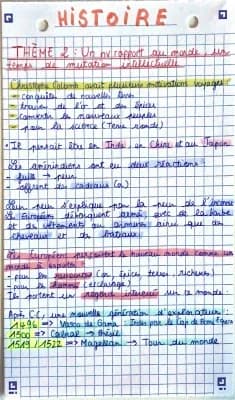 HISTOIRE
THÈME 2 : Un nv rapport au monde, un
temps de mutation intellectuelle
Christophe Colomb avait plusieurs motivations voyages :
- conquérir de nouvelles terres
- trouver de l'or et des épices
- convertir la nouveaux peuples
- pour la science (Terre ronde)
• Il pensait être en Inde, en Chine et au Japon
Les amérindiens ont eu deux réactions :
- fuite → peur
- offrent des cadeaux (or)
Leur peur s'explique par la peur de l'inconnu
Les Européens débarquent armé, avec de la barbe
et des vêtements ainsi que des
chevaux et de bateaux.
Les Européens percevaient le nouveau monde comme un
monde à
- pour les (or, épices, terres, richesses)
- pour les (esclavage)
Ils portent un regard intéressé sur ce monde.
Après C.C, une nouvelle génération d'explorateurs :
1496 => Vasco de Gama Indes par le Cap de Bonne Esp
1500 => Cabral → Brésil
1519 / 1522 => Magellan → Tour du monde